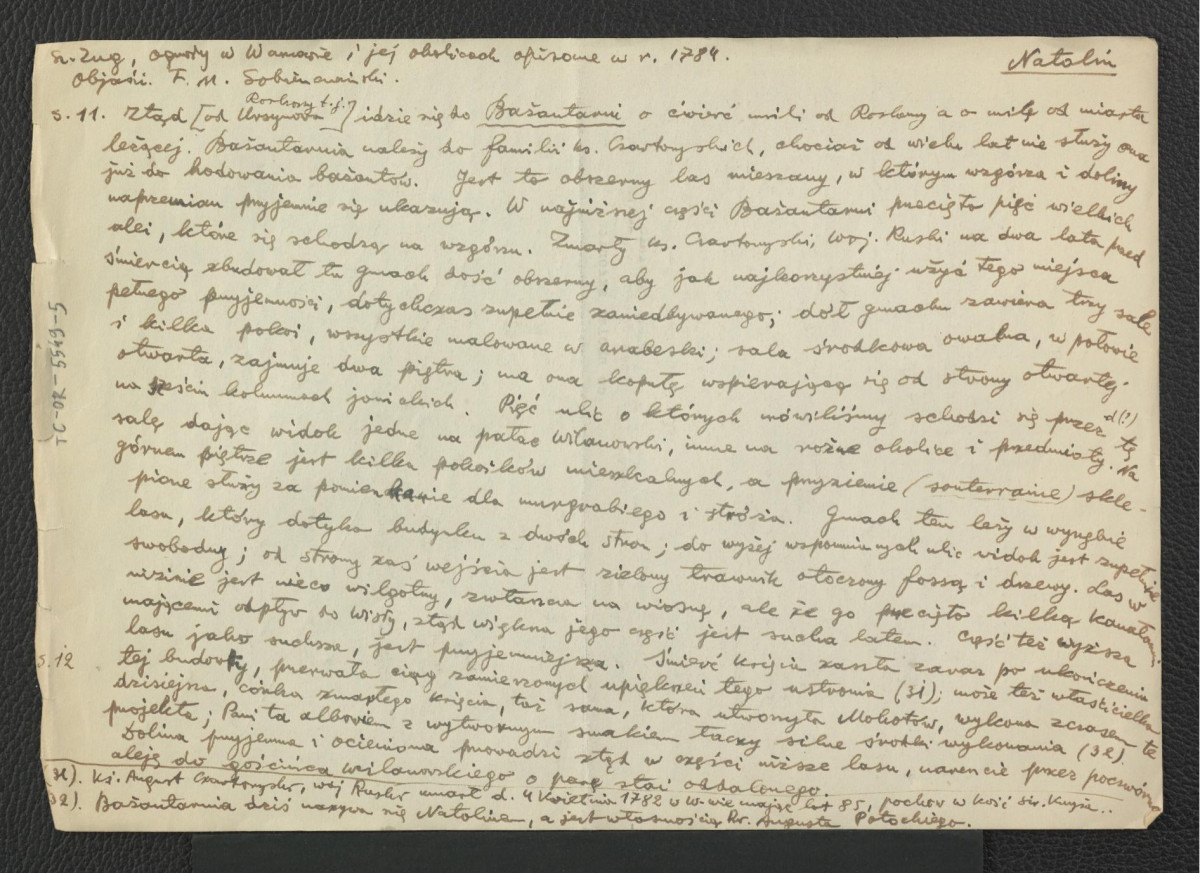 Sz. Zug, ogrody w Warszawie i jej okolicach opisane w r. 1784.
Natolin
Objaśn. F. M. Sobieszczański.
s. 11. Ztąd [od Ursynowa Rozkoszy t.j.] idzie się do Bażantarni o ćwierć mili od Rozkoszy a o milę od miasta
leżącej. Bażantarnia należy do familii ks. Czartoryskich, chociaż od wielu lat nie służy ona
już do hodowania bażantów. Jest to obszerny las mieszany, w którym wzgórza i doliny
naprzemian przyjemnie się ukazują. W najniższej części Bażantarni przecięto pięć wielkich
alei, które się schodzą na wzgórzu. Zmarły ks. Czartoryski, woj. Ruski na dwa lata przed
śmiercią zbudował tu gmach dość obszerny, aby jak najkorzystniej użyć tego miejsca
pełnego przyjemności, dotychczas zupełnie zaniedbywanego; dół gmachu zawiera trzy sale
i kilka pokoi, wszystkie malowane w arabeski; sala środkowa owalna, w połowie
otwarta, zajmuje dwa piętra; ma ona kopułę wspierającą się od strony otwartej
na sześciu kolumnach jonickich. Pięć ulic o których mówiliśmy schodzi się przez d(!) tę
salę dając widok jedne na pałac Wilanowski, inne na różne okolice i przedmioty. Na
górnem piętrze jest kilka pokoików mieszkalnych, a przyziemie (souterraine) skle-
pione służy za pomieszkanie dla murgrabiego i stróża. Gmach ten leży w wyrąbie
lasu, który dotyka budynku z dwóch stron; do wyżej wspomnianych ulic widok jest zupełnie
swobodny; od strony zaś wejścia jest zielony trawnik otoczony fossą i drzewy. Las w
nizinie jest nieco wilgotny, zwłaszcza na wiosnę, ale że go przecięto kilką kanałami,
mającemi odpływ do Wisły, ztąd większa jego część jest sucha latem. Część też wyższa
lasu jako suchsza, jest przyjemniejsza. Śmierć księcia zaszła zaraz po ukończeniu
s. 12 tej budowy, przerwała ciąg zamierzonych upiększeń tego ustronia (31); może też właścicielka
dzisiejsza, córka zmarłego księcia, taż sama, która utworzyła Mokotów, wykona z czasem te
projekta; Pani ta albowiem z wytwornym smakiem łączy silne środki wykonania (32).
Dolina przyjemna i ocieniona prowadzi ztąd w części niższe lasu, narescie przez poczwórną
aleję do gościńca wilanowskiego o parę stai oddalonego.
(31). Ks. August Czartoryski, woj Ruski umarł d. 4 Kwietnia 1782 w W-wie mając lat 85, pochow w kość św. Krzyża..
(32). Bażantarnia dziś nazywa się Natolinem, a jest własnością Hr. Augusta Potockiego.
TC-OR-5549-5